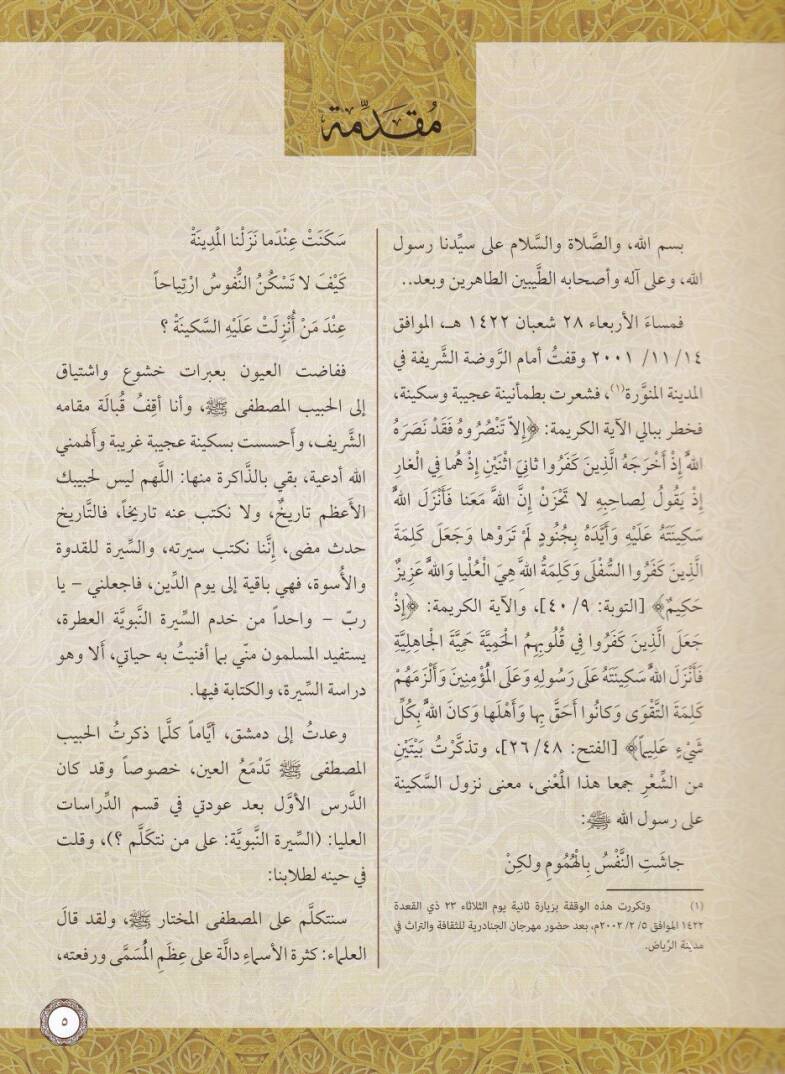 مُقَدِّمة
بسم الله، والصَّلاة والسَّلام على سيِّدنا رسول
الله، وعلى آله وأصحابه الطَّيبين الطاهرين وبعد..
فمساءَ الأربعاء ٢٨ شعبان ١٤٢٢ هـ، الموافق
١٤/ ١١/ ٢٠٠١ وقفتُ أمام الرَّوضة الشَّريفة في
المدينة المنوَّرة(١)، فشعرت بطمأنينة عجيبة وسكينة،
فخطر ببالي الآية الكريمة: ﴿إِلاَّ تَنْصُرُوهُ فَقَدْ نَصَرَهُ
اللهُ إِذْ أَخْرَجَهُ الَّذِينَ كَفَرُوا ثانِيَ اثْنَيْنِ إِذْ هُما فِي الْغارِ
إِذْ يَقُولُ لِصاحِبِهِ لا تَحْزَنْ إِنَّ اللهَ مَعَنا فَأَنْزَلَ اللهُ
سَكِينَتَهُ عَلَيْهِ وَأَيَّدَهُ بِجُنُودٍ لَمْ تَرَوْها وَجَعَلَ كَلِمَةَ
الَّذِينَ كَفَرُوا السُّفْلَى وَكَلِمَةُ اللهِ هِيَ الْعُلْيا وَاللهُ عَزِيزٌ
حَكِيمٌ﴾ [التوبة: ٩/ ٤٠]، والآية الكريمة: ﴿إِذْ
جَعَلَ الَّذِينَ كَفَرُوا فِي قُلُوبِهِمُ الْحَمِيَّةَ حَمِيَّةَ الْجاهِلِيَّةِ
فَأَنْزَلَ اللهُ سَكِينَتَهُ عَلَى رَسُولِهِ وَعَلَى الْمُؤْمِنِينَ وَأَلْزَمَهُمْ
كَلِمَةَ التَّقْوَى وَكانُوا أَحَقَّ بِها وَأَهْلَها وَكانَ اللهُ بِكُلِّ
شَيْءٍ عَلِيماً﴾ [الفتح: ٤٨/ ٢٦]، وتذكَّرْتُ بَيْتَيْنِ
من الشِّعْرِ جمعا هذا المْعْنى، معنى نزول السَّكينة
على رسول الله ﷺ:
جاشَتِ النَّفْسُ بِالْهُمُومِ ولكِنْ
(١) وتكررت هذه الوقفة بزيارة ثانية يوم الثلاثاء ٢٣ ذي القعدة
١٤٢٢ الموافق ٥/ ٢/ ٢٠٠٢م، بعد حضور مهرجان الجنادرية للثقافة والتراث في
مدينة الرِّياض.
سَكَنَتْ عِنْدَما نَزَلْنا الْمَدِينَةْ
كَيْفَ لا تَسْكُنُ النُّفوسُ ارْتِياحاً
عِنْدَ مَنْ أُنْزِلَتْ عَلَيْهِ السَّكينَةْ ؟
ففاضت العيون بعبرات خشوع واشتياق
إلى الحبيب المصطفى ﷺ، وأنا أقِفُ قُبالَة مقامه
الشَّريف، وأَحسست بسكينة عجيبة غريبة وأَلهمني
الله أدعية، بقي بالذَّاكرة منها: اللَّهم ليس لحبيبك
الأعظم تاريخٌ، ولا نكتب عنه تاريخاً، فالتَّاريخ
حدث مضى، إِنَّنا نكتب سيرته، والسِّيرة للقدوة
والأُسوة، فهي باقية إلى يوم الدِّين، فاجعلني – يا
ربّ – واحداً من خدم السِّيرة النَّبويَّة العطرة،
يستفيد المسلمون منّي بما أفنيتُ به حياتي، أَلا وهو
دراسة السِّيرة، والكتابة فيها.
وعدتُ إلى دمشق، أيَّاماً كلَّما ذكرتُ الحبيب
المصطفى ﷺ تَدْمَعُ العين، خصوصاً وقد كان
الدَّرس الأوَّل بعد عودتي في قسم الدِّراسات
العليا: (السِّيرة النَّبويَّة: على من نتكلَّم ؟)، وقلت
في حينه لطلابنا:
سنتكلَّم على المصطفى المختار ﷺ، ولقد قالَ
العلماء: كثرة الأسماءِ دالَّة على عِظَمِ الْمُسَمَّى ورفعته،
٥